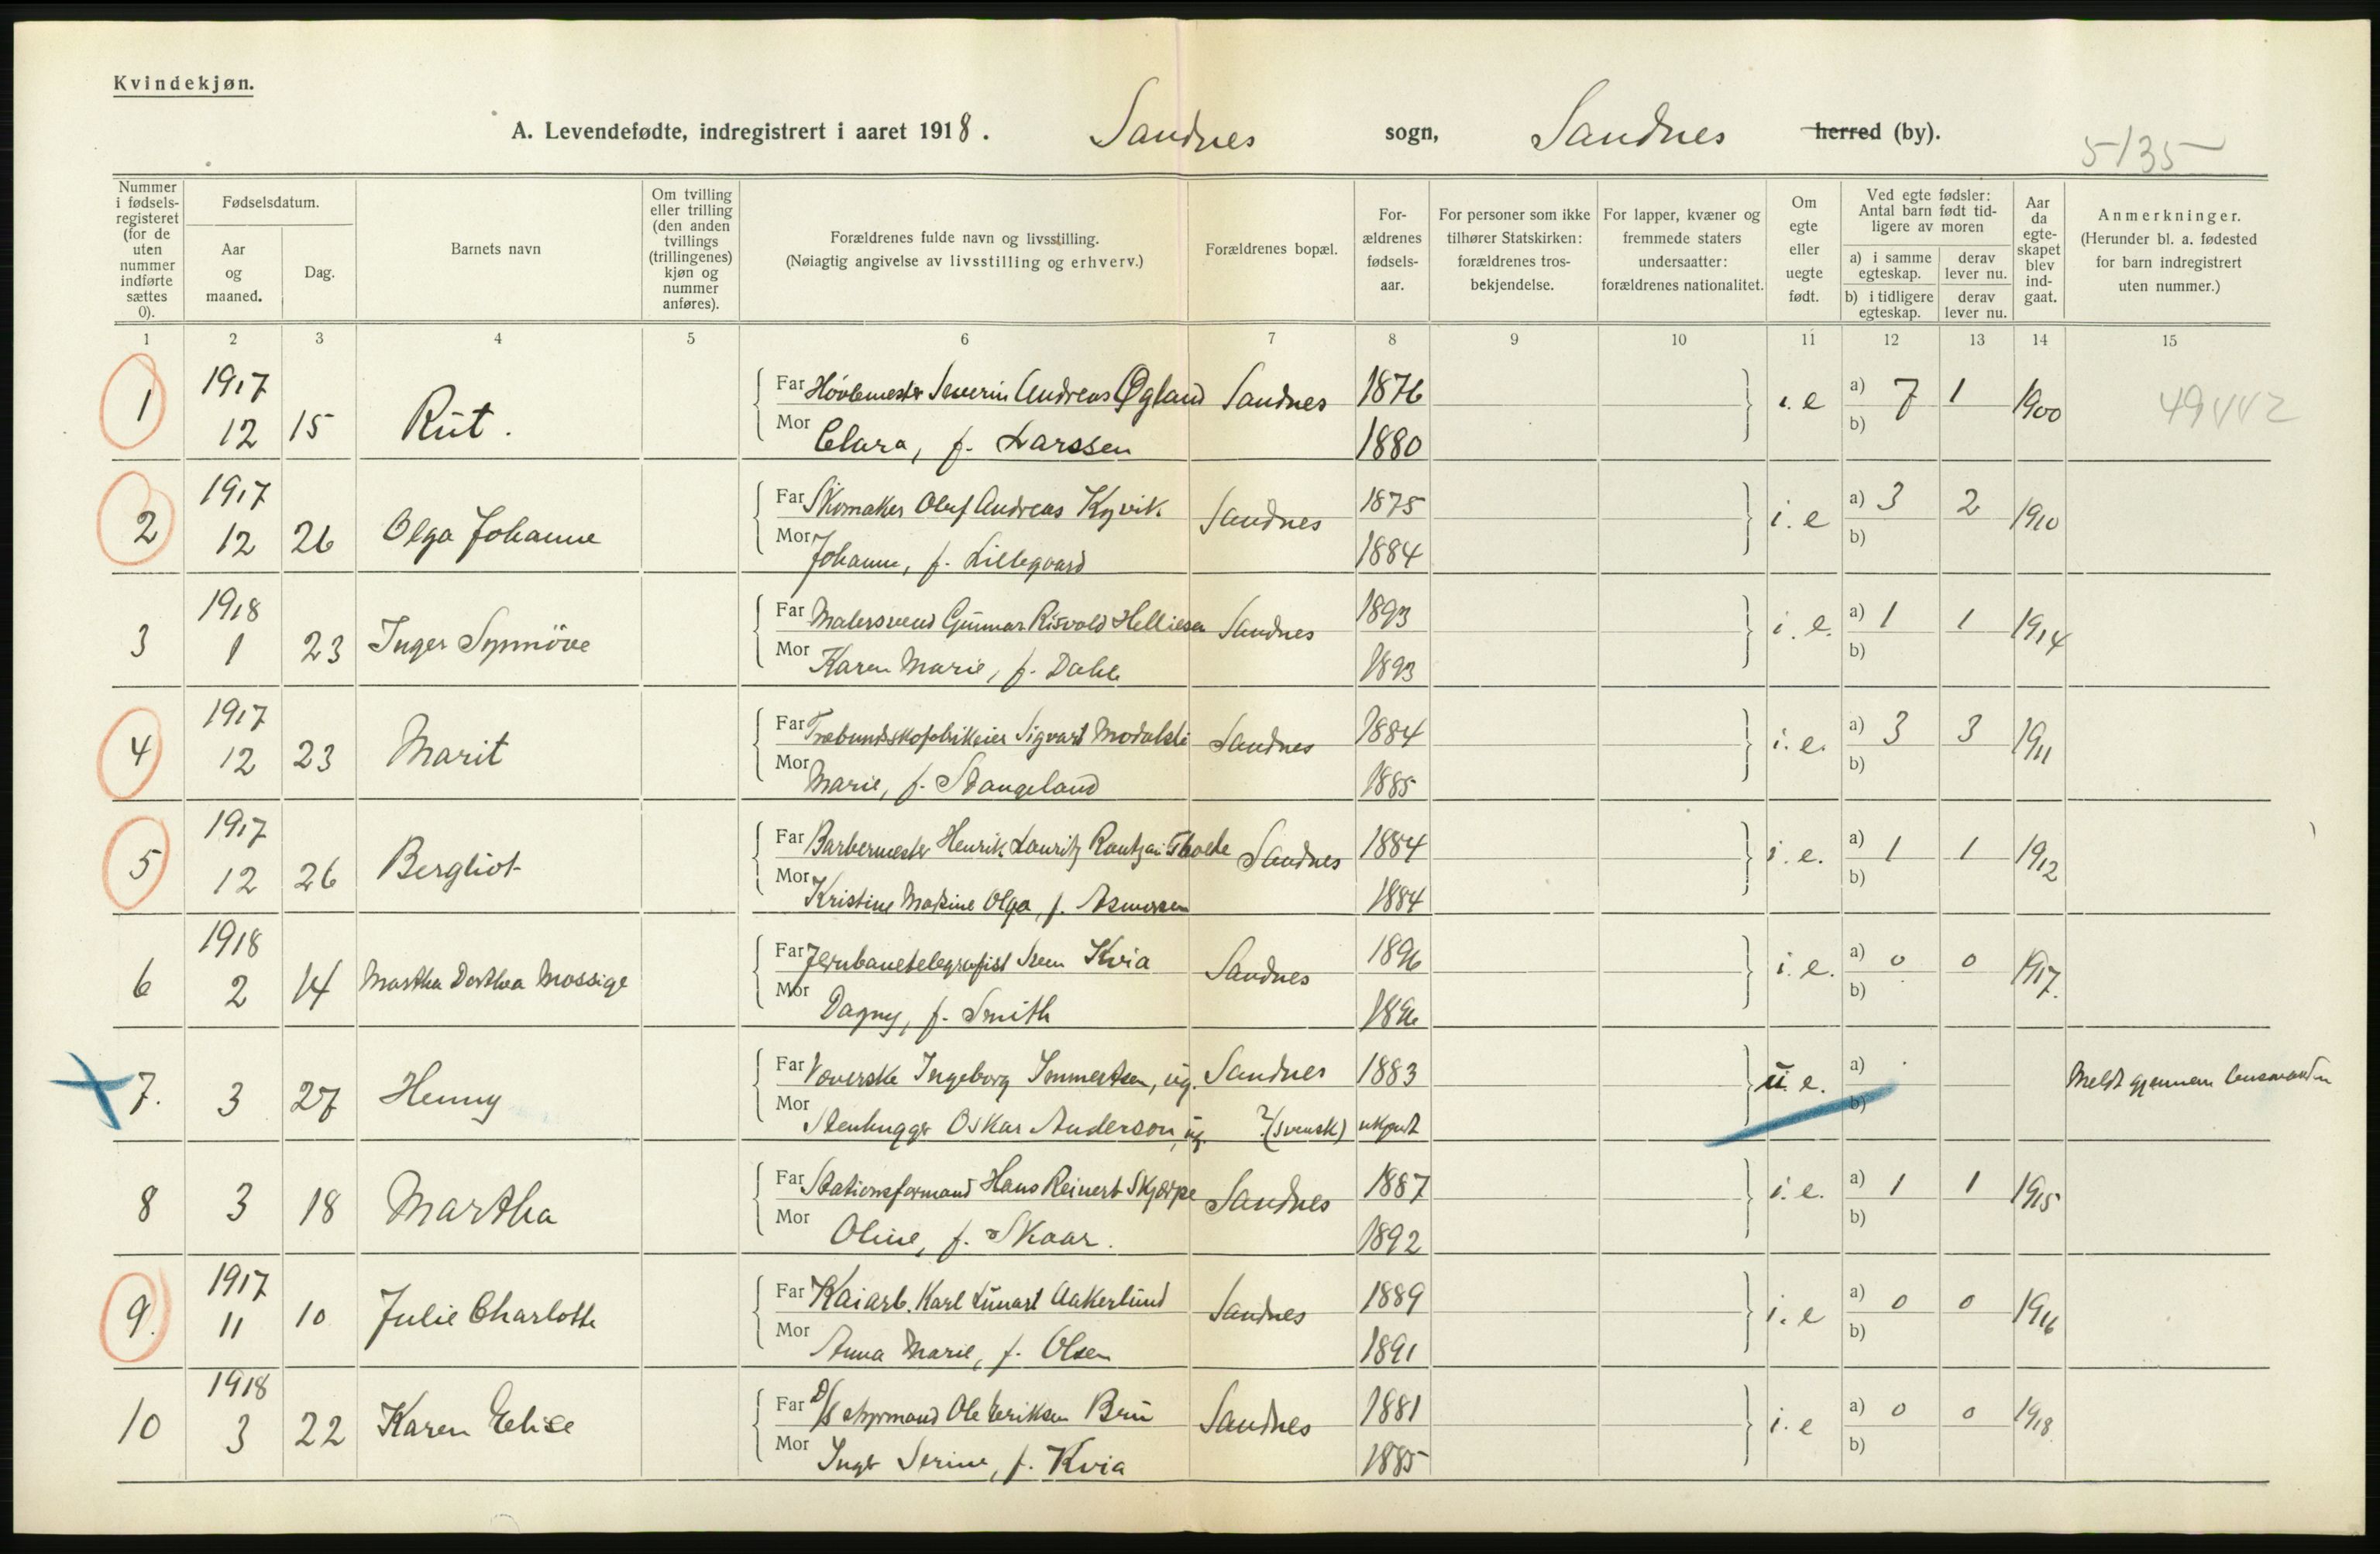 Kvindekjøn.
A. Levendefødte, indregistrert i aaret 1918. Sandnes sogn, Sandnes herred (by).
5135
Nummer i fødselsregisteret (for de uten nummer indførte sættes 0).
Fødselsdatum.
Aar og maaned.
Dag.
Barnets navn
Om tvilling eller trilling (den anden tvillings (trillingenes) kjøn og nummer anføres).
Forældrenes fulde navn og livsstilling.
(Nøiagtig angivelse av livsstilling og erhverv.)
Forældrenes bopæl.
Forældrenes fødselsaar.
For personer som ikke tilhører Statskirken: forældrenes trosbekjendelse.
For lapper, kvæner og fremmede staters undersaatter: forældrenes nationalitet.
Om egte eller uegte født.
Ved egte fødsler: Antal barn født tidligere av moren
a) i samme egteskap.
derav lever nu.
b) i tidligere egteskap.
derav lever nu.
Aar da egteskapet blev indgaat.
Anmerkninger.
(Herunder bl. a. fødested for barn indregistrert uten nummer.)
1 2 3 4 5 6 7 8 9 10 11 12 13 14 15
1 1917 12 15 Rut. Far Høvlemester Severin Andreas Øgland Sandnes 1876 i. e a) 7 1 1900
Mor Clara, f. Larssen 1880 b)
2 1917 12 26 Olga Johanne Far Skomaker Oluf Andreas Kyvik Sandnes 1875 i. e a) 3 2 1910
Mor Johanne, f. Lillegaard 1884 b)
3 1918 1 23 Inger Synnöve Far Malersvend Gunnar Risvold Helliesen Sandnes 1893 i. e. a) 1 1 1914
Mor Karen Marie, f. Dahle 1893 b)
4 1917 12 23 Marit Far Træbundskofabrikeier Sigvart Modalsli Sandnes 1884 i. e. a) 3 3 1911
Mor Marie, f. Stangeland 1885 b)
5 1917 12 26 Bergliot Far Barbermester Henrik Lauritz Sandnes 1884 i. e. a) 1 1 1912
Mor Kristine Olga, f. 1884 b)
6 1918 2 14 Martha Dorthea Mossige Far Jernbanetelegrafist Sven Kvia Sandnes 1896 i. e. a) 0 0 1917.
Mor Dagny, f. Smith 1896 b)
7. 3 27 Henny Far Væverske Ingeborg ug. Sandnes 1883 u. e. a) Meldt gjennem lensmanden
Mor Stenhugger Oskar Anderson, ug. ? (svensk) ukjendt b)
8 3 18 Martha Far Stationsformand Hans Reinert Skjørpe Sandnes 1887 i. e. a) 1 1 1915
Mor Oline, f. Skaar. 1892 b)
9. 1917 11 10 Julie Charlotte Far Kaiarb. Karl Lünart Aakerlund Sandnes 1889 i. e a) 0 0 1916
Mor Anna Marie, f. Olsen 1891 b)
10 1918 3 22 Karen Elise Far D/S styrmand Ole Eriksen Brun Sandnes 1881 i. e a) 0 0 1918
Mor Inger Serine, f. Kvia 1885 b)